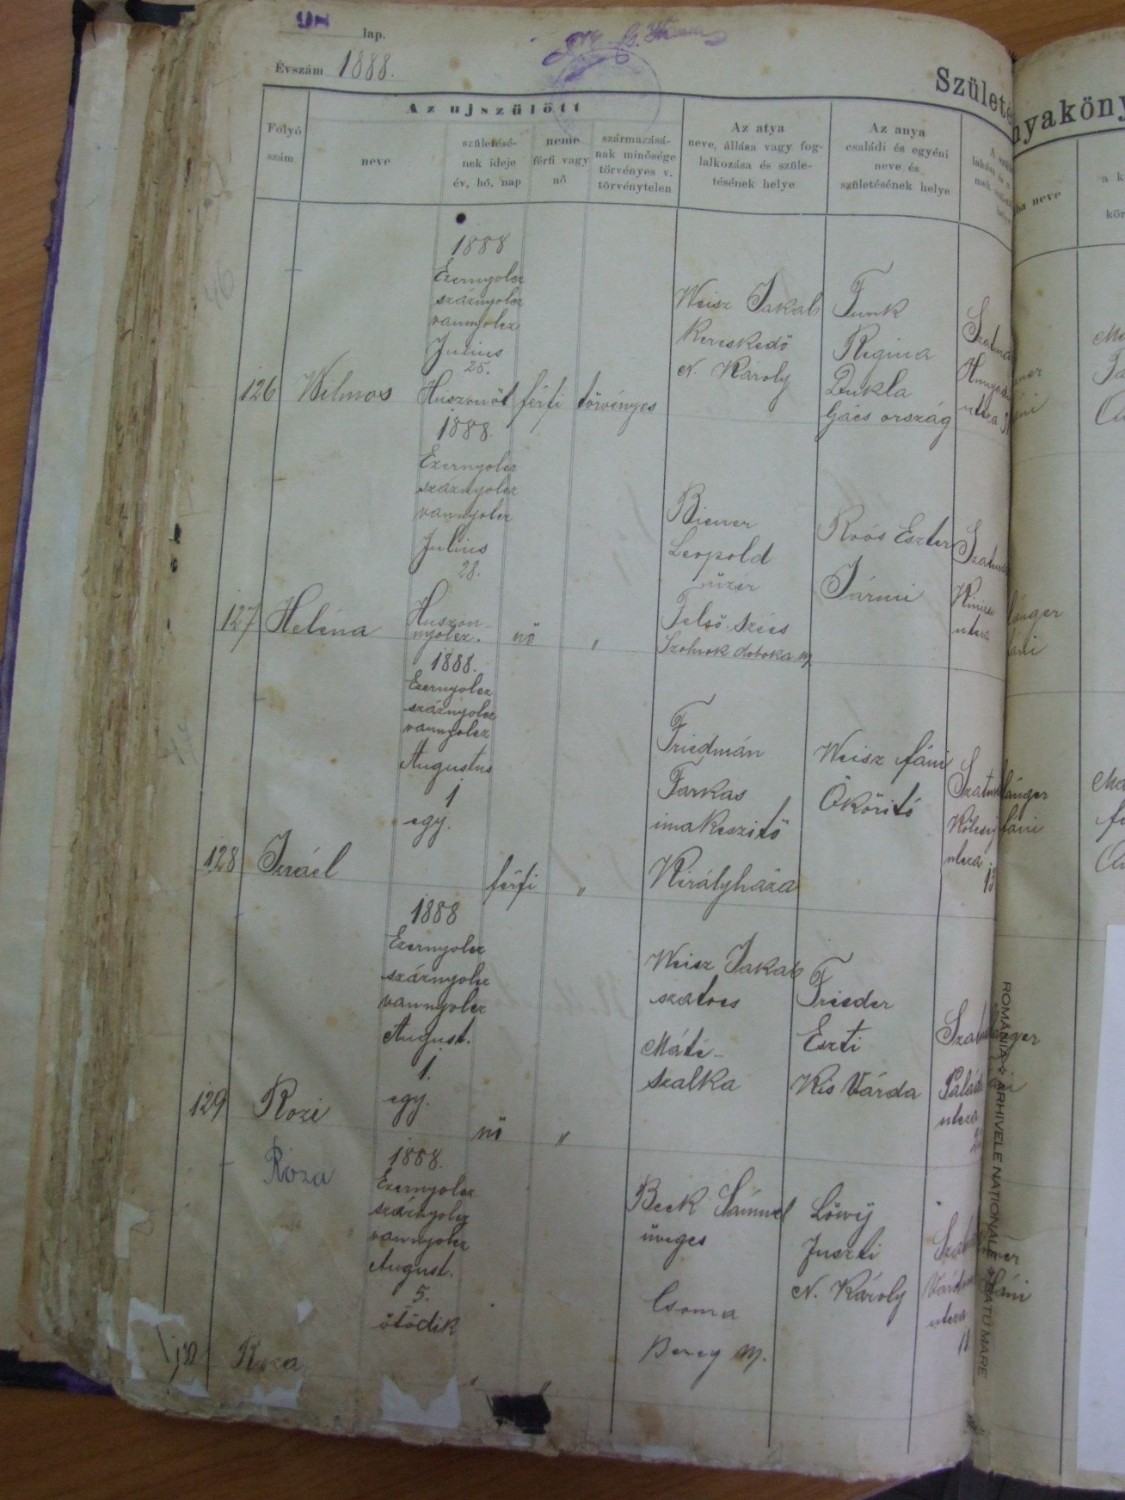 lap.
Évszám 1888.
Születé
nyaköny
Az ujszülött
Folyó
szám
neve
születésé-
nek ideje
év, hó, nap
neme
férfi vagy
nő
származásá-
nak minősége
törvényes v.
törvénytelen
Az atya
neve, állása vagy fog-
lalkozása és szüle-
tésének helye
Az anya
családi és egyéni
neve és
születésének helye
ba neve
126
Vilmos
1888
Ezernyolcz
száznyolcz
vannyolcz
Julius
25.
Huszonöt
férfi
törvényes
Weisz Jakab
Kereskedő
N. Károly
Funk
Regina
Dukla
Gács ország
127
Heléna
1888.
Ezernyolcz
száznyolcz
vannyolcz
Julius
28.
Huszon-
nyolcz.
nő
"
Biener
Leopold
Felső Szőcs
Szolnok Doboka m.
Roós Eszter
Jármi
128
Izráel
1888.
Ezernyolcz
száznyolcz
vannyolcz
Augustus
1
egy.
férfi
"
Friedmán
Farkas
imakeszitő
Királyháza
Weisz fáni
Ököritó
utcza
13
129
Rozi
1888
Ezernyolcz
száznyolcz
vannyolcz
August.
1.
egy.
nő
"
Weisz Jakab
szatocs
Máté-
szalka
Frieder
Eszti
Kis Várda
utcza
Róza
1888.
Ezernyolcz
száznyolcz
vannyolcz
August.
5.
ötödik
Beck Sámuel
üveges
Csoma
Bereg m.
Löwÿ
Juszti
N. Károly
utcza
11
Roza
ROMÂNIA * ARHIVELE NAȚIONALE * SATU MARE